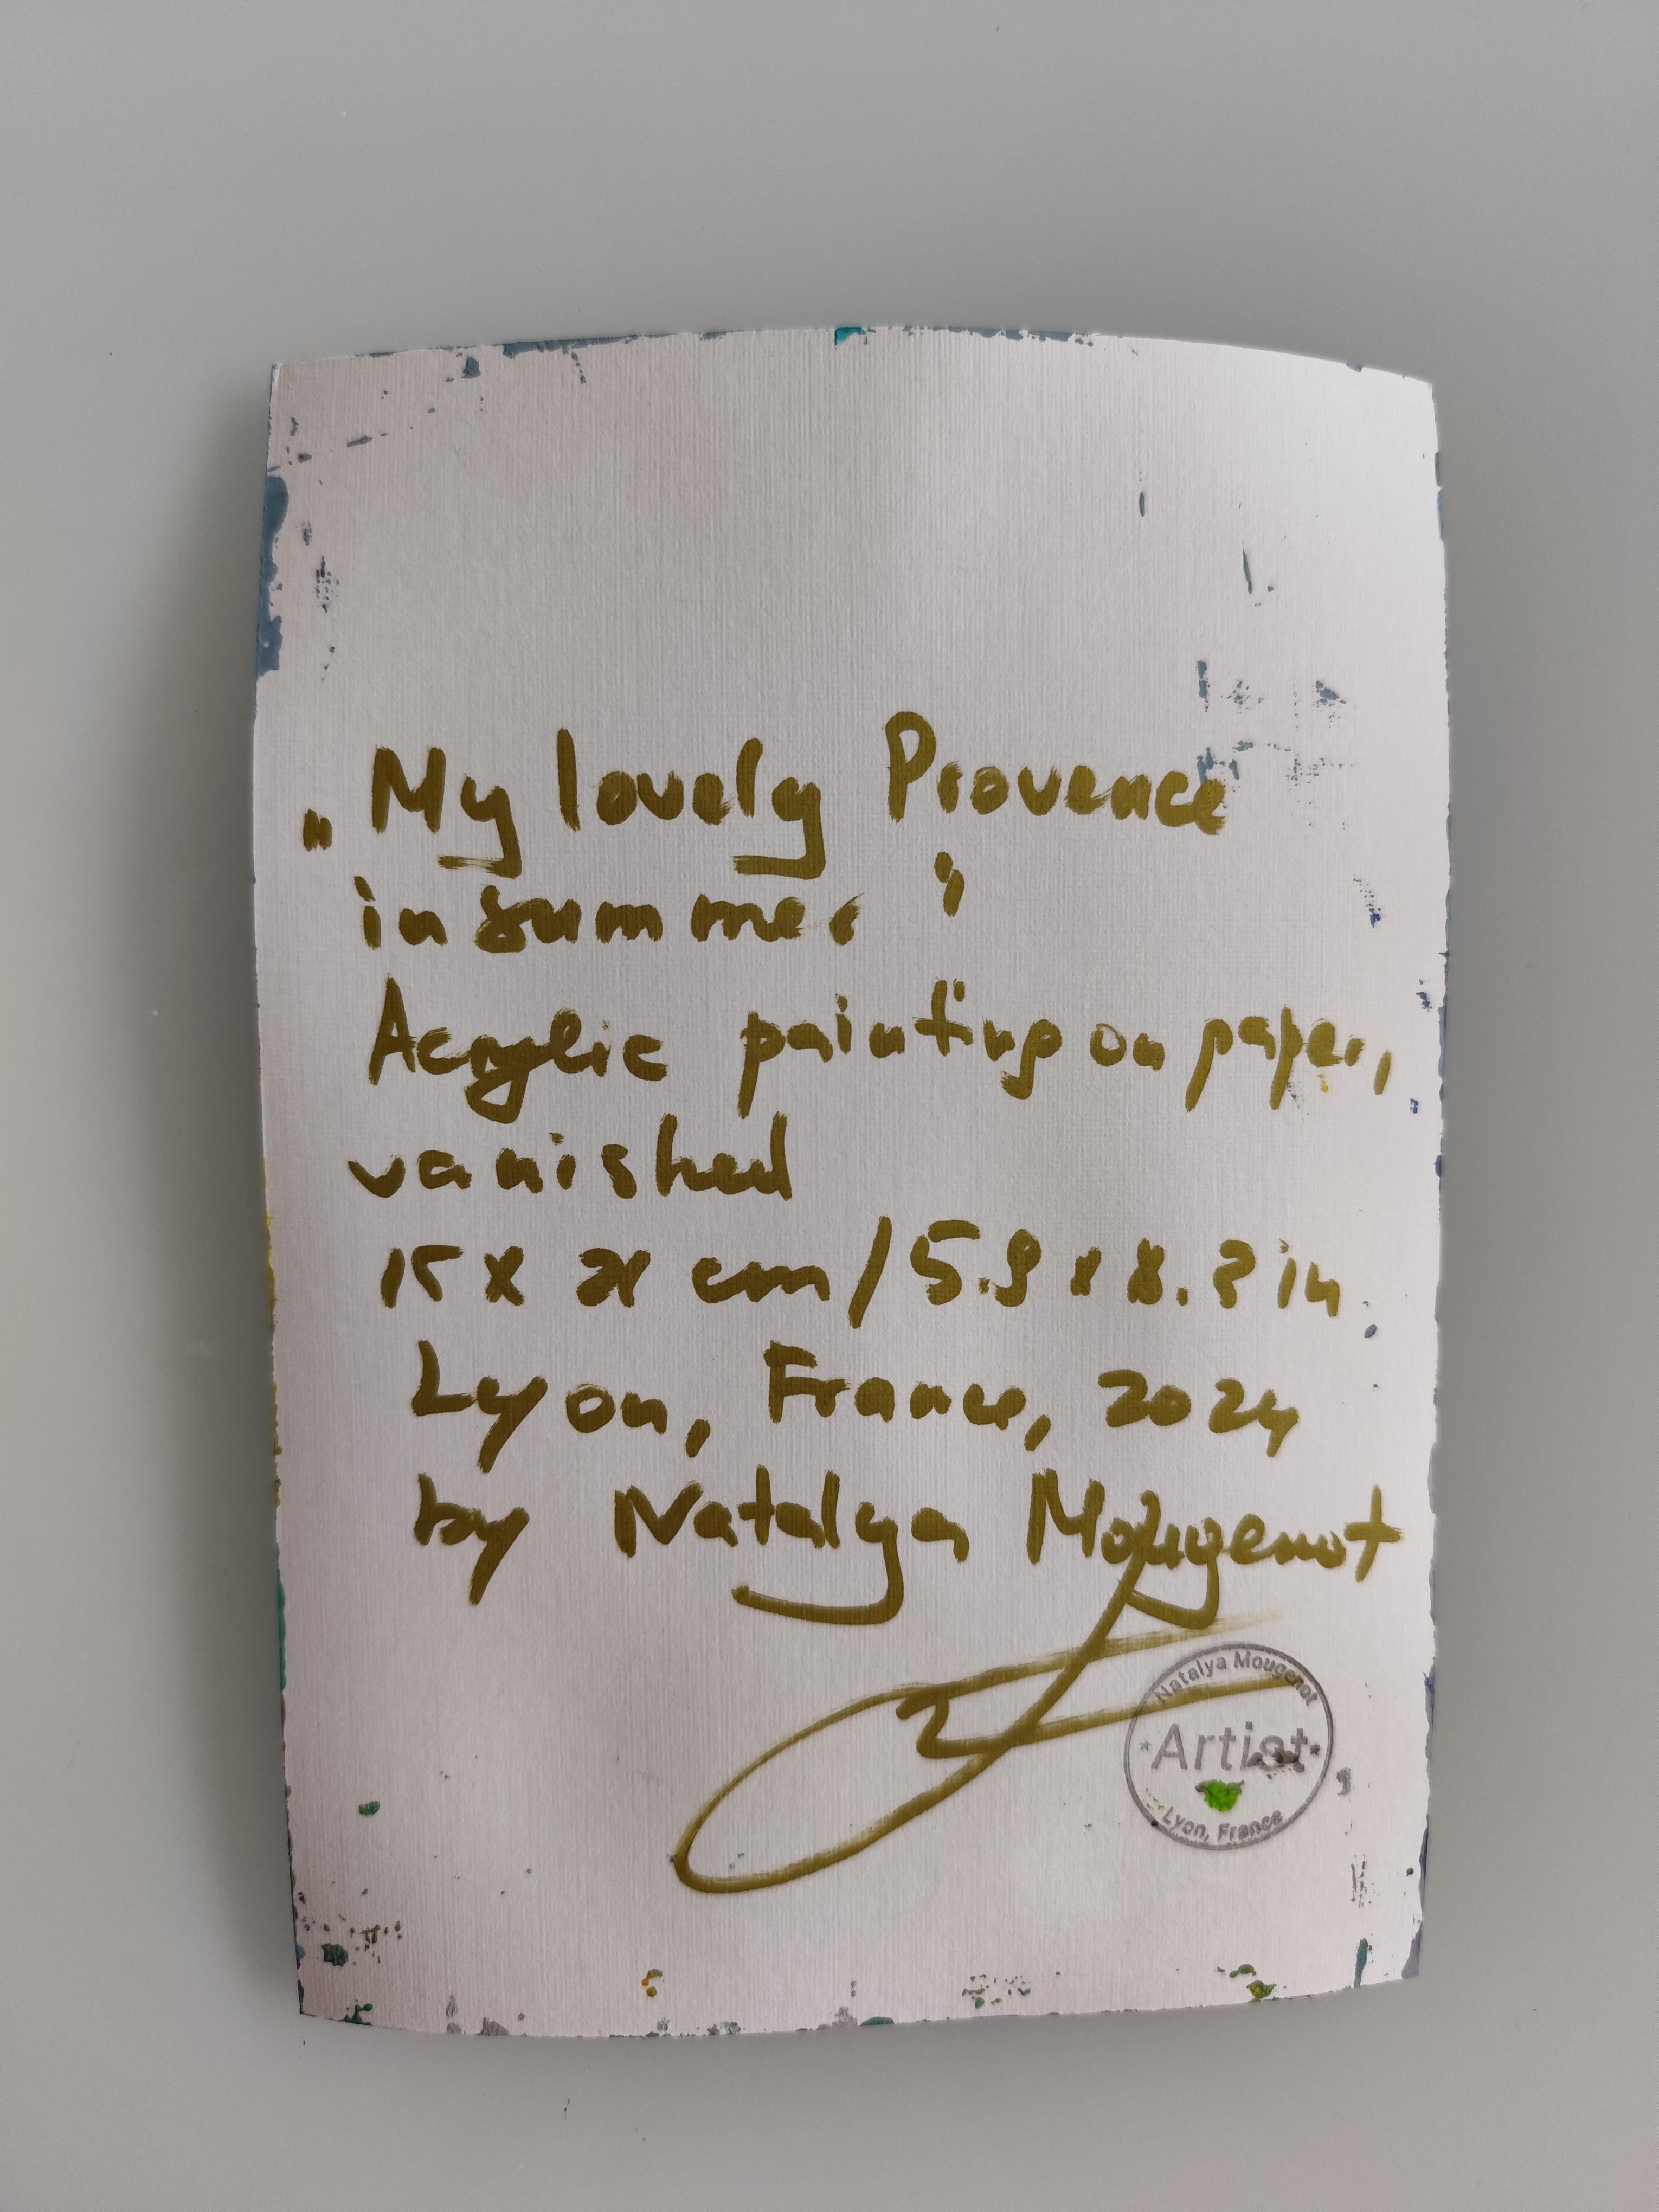 „My lovely Provence
in summer"
Acrylic painting on paper,
vanished
15 x 21 cm / 5.9 x 8.3 in.
Lyon, France, 2024
by Natalya Mougenot
Natalya Mougenot
*Artist*
Lyon, France